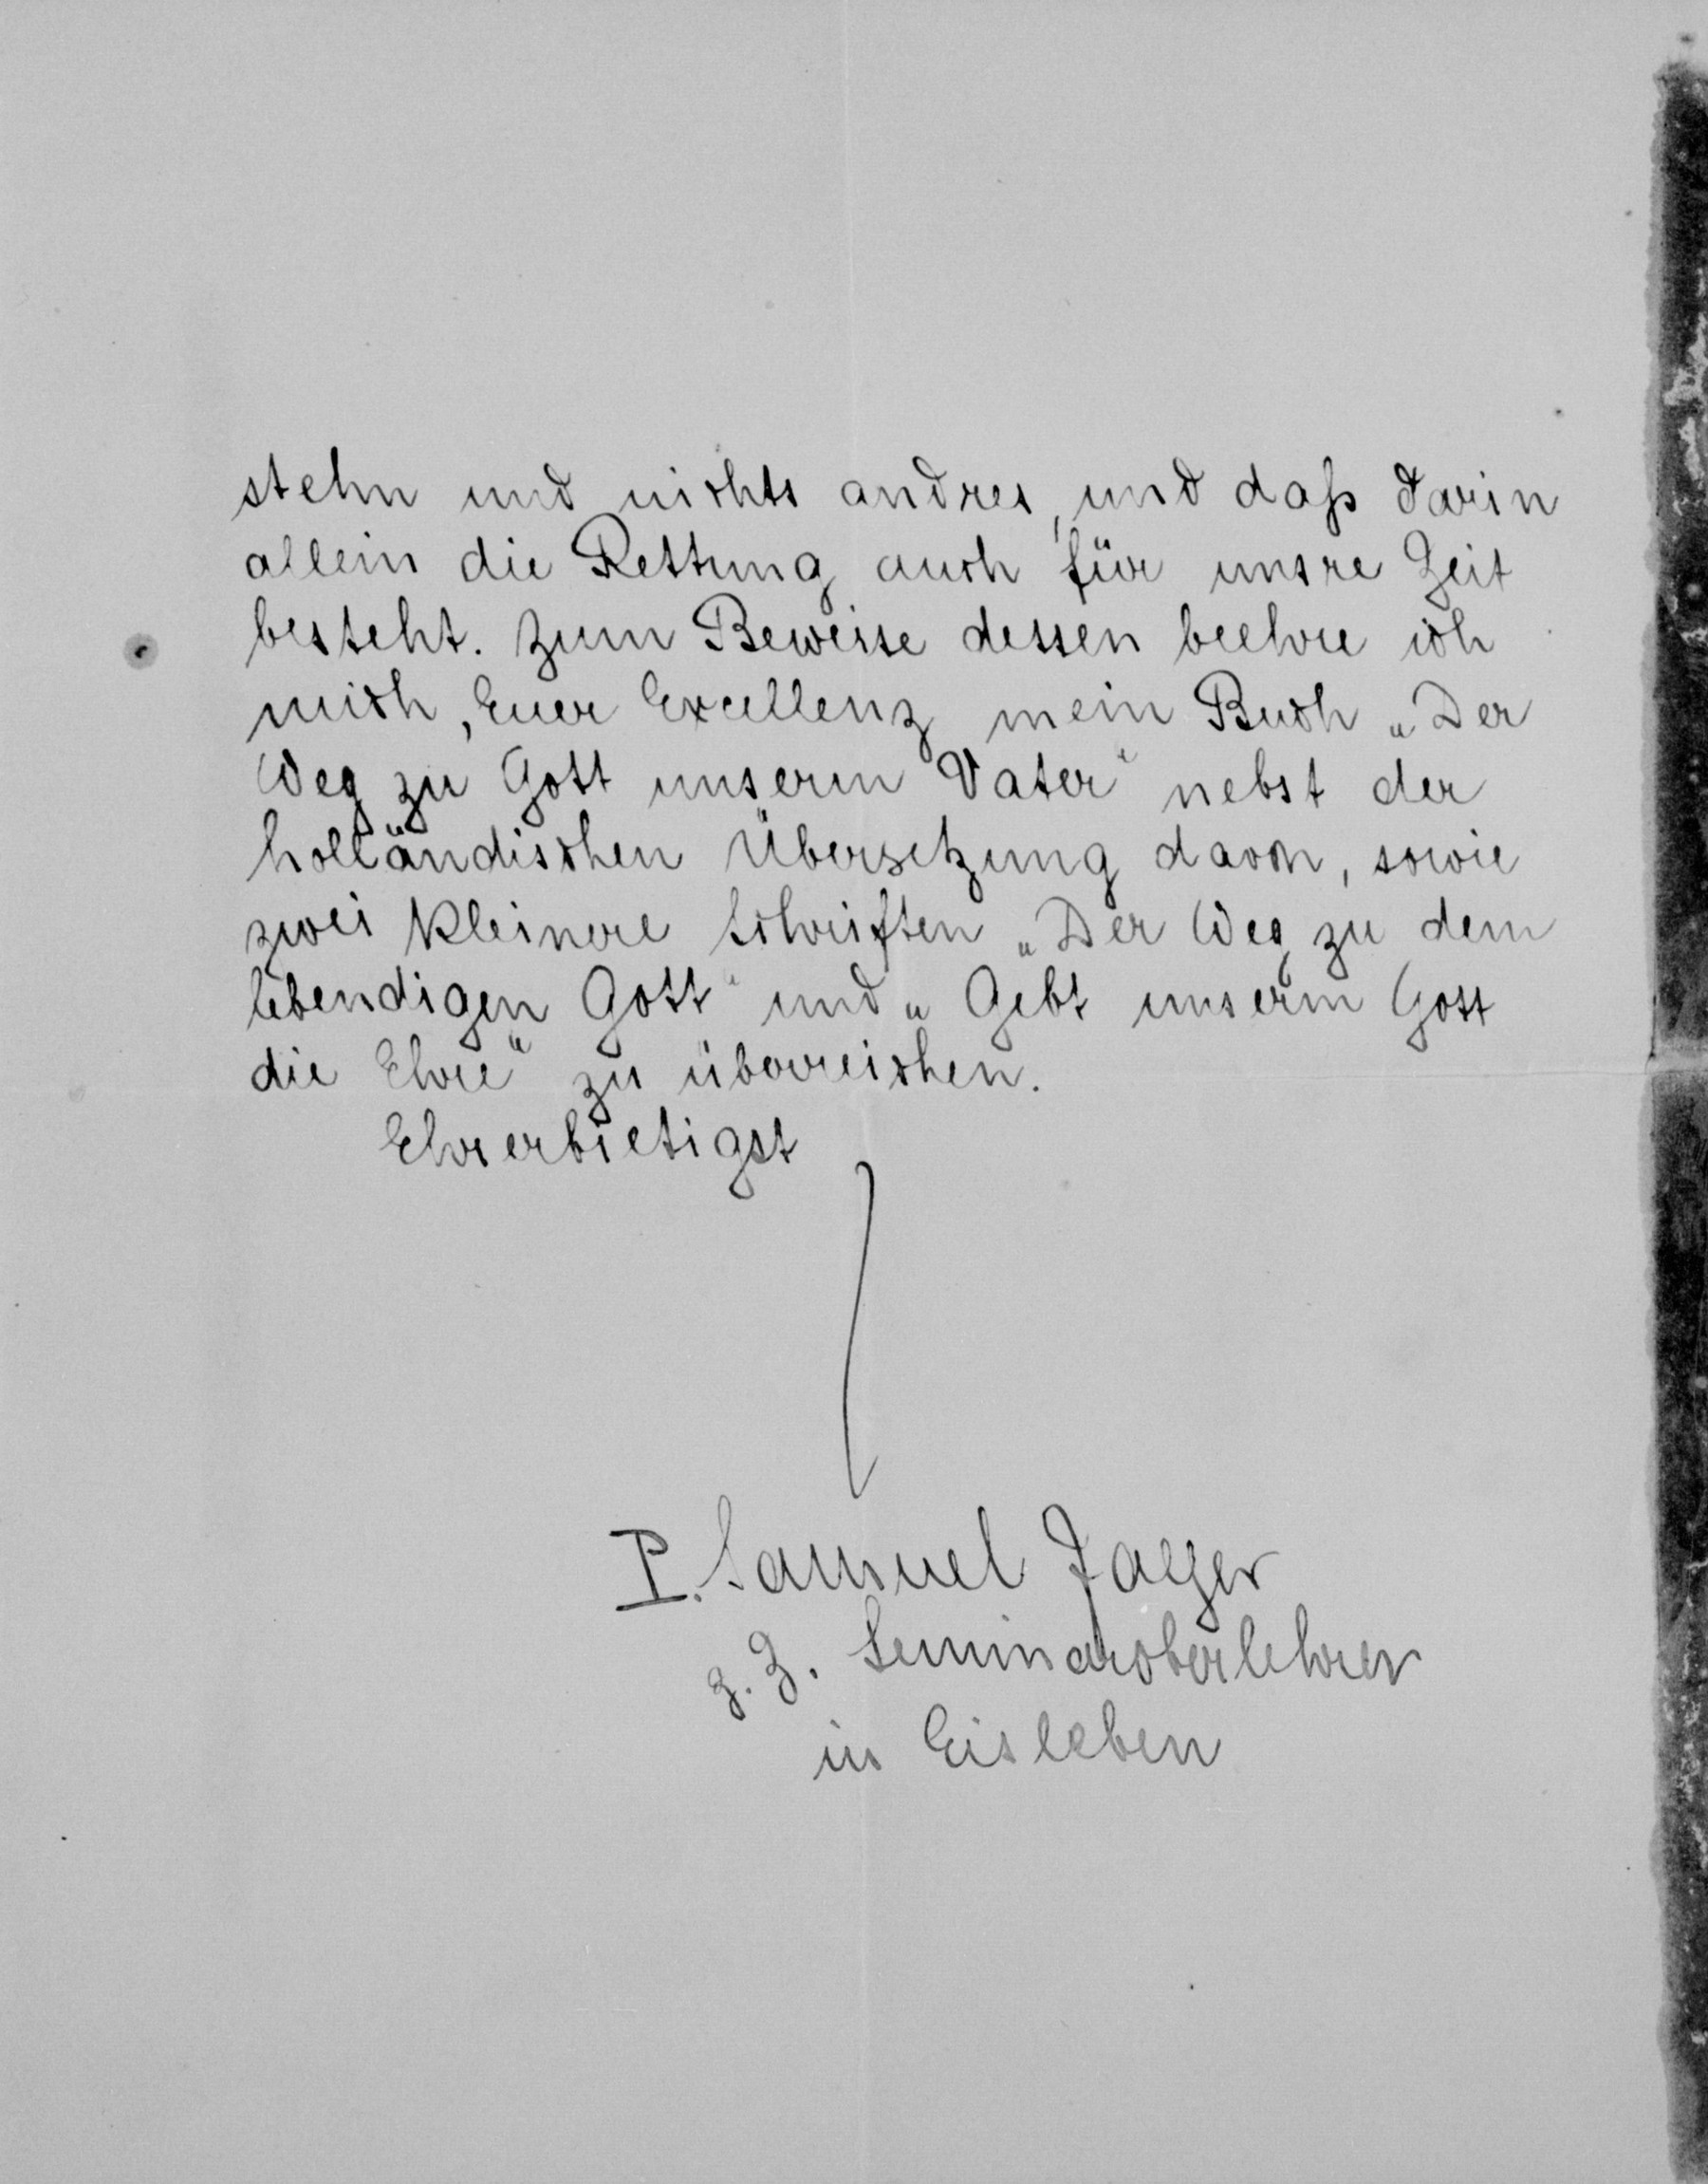 stehn und nichts andres, und daß darin
allein die Rettung auch für unsre Zeit
besteht. Zum Beweise dessen beehre ich
mich, Euer Excellenz mein Buch „Der
Weg zu Gott unserm Vater“ nebst der
holländischen Übersetzung davon, sowie
zwei kleinere Schriften „Der Weg zu dem
lebendigen Gott“ und „Gebt unserm Gott
die Ehre“ zu überreichen.
Ehrerbietigst
P. Samuel Jaeger
z. Z. Seminaroberlehrer
in Eisleben